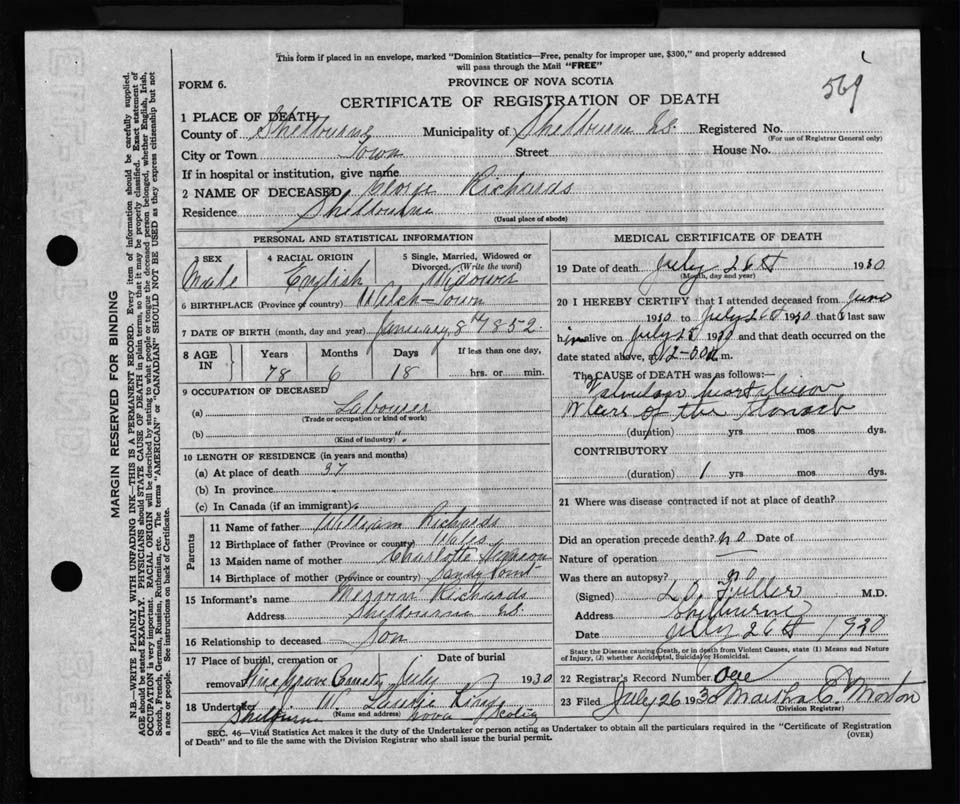 This form if placed in an envelope, marked "Dominion Statistics—Free, penalty for improper use, $300," and properly addressed
will pass through the Mail "FREE"
FORM 6.
PROVINCE OF NOVA SCOTIA
569
CERTIFICATE OF REGISTRATION OF DEATH
1 PLACE OF DEATH
County of Shelburne Municipality of Shelburne N.S. Registered No.
(For use of Registrar General only)
City or Town Town Street House No.
If in hospital or institution, give name
2 NAME OF DECEASED George Richards
Residence Shelburne
(Usual place of abode)
PERSONAL AND STATISTICAL INFORMATION
3 SEX 4 RACIAL ORIGIN 5 Single, Married, Widowed or
Divorced. (Write the word)
Male English Widower
6 BIRTHPLACE (Province or country) Welch-Town
7 DATE OF BIRTH (month, day and year) January 8th 1852
8 AGE IN Years Months Days If less than one day,
78 6 18 hrs. or min.
9 OCCUPATION OF DECEASED
(a) Labourer
(Trade or occupation or kind of work)
(b)
(Kind of industry)
10 LENGTH OF RESIDENCE (in years and months)
(a) At place of death 37
(b) In province
(c) In Canada (if an immigrant)
Parents
11 Name of father William Richards
12 Birthplace of father (Province or country) Wales
13 Maiden name of mother Charlotte
14 Birthplace of mother (Province or country) Sandy Point
15 Informant's name Richards
Address Shelburne NS
16 Relationship to deceased Son
17 Place of burial, cremation or Date of burial
removal Pine Grove Cemetery July 1930
18 Undertaker W.
(Name and address)
Shelburne Nova Scotia
MEDICAL CERTIFICATE OF DEATH
19 Date of death July 26th 1930
(Month, day and year)
20 I HEREBY CERTIFY that I attended deceased from June
1930 to July 26th 1930 that I last saw
him alive on July 25 1930 and that death occurred on the
date stated above, at 12-30 a.m.
The CAUSE of DEATH was as follows:—
Valvular heart lesion
Ulcers of the stomach
(duration) yrs mos dys.
CONTRIBUTORY
(duration) 1 yrs mos dys.
21 Where was disease contracted if not at place of death?
Did an operation precede death? no Date of
Nature of operation —
Was there an autopsy? no
(Signed) L.O. Fuller M.D.
Address Shelburne
Date July 26th 1930
State the Disease causing Death, or in death from Violent Causes, state (1) Means and Nature
of Injury, (2) whether Accidental, Suicidal or Homicidal.
22 Registrar's Record Number
23 Filed July 26 1930 Martha C. Morton
(Division Registrar)
SEC. 46—Vital Statistics Act makes it the duty of the Undertaker or person acting as Undertaker to obtain all the particulars required in the "Certificate of Registration
of Death" and to file the same with the Division Registrar who shall issue the burial permit.
(OVER)
MARGIN RESERVED FOR BINDING
N.B.—WRITE PLAINLY WITH UNFADING INK—THIS IS A PERMANENT RECORD. Every item of information should be carefully supplied.
AGE should be stated EXACTLY. PHYSICIANS should STATE CAUSE OF DEATH in plain terms, so that it may be properly classified. Exact statement of
OCCUPATION is very important. RACIAL ORIGIN will be described by stating to what people or tongue the deceased person belonged, whether English, Irish,
Scotch, French, German, Russian, Ruthenian, etc. The terms "AMERICAN" or "CANADIAN" SHOULD NOT BE USED as they express citizenship but not
a race or people. See instructions on back of Certificate.